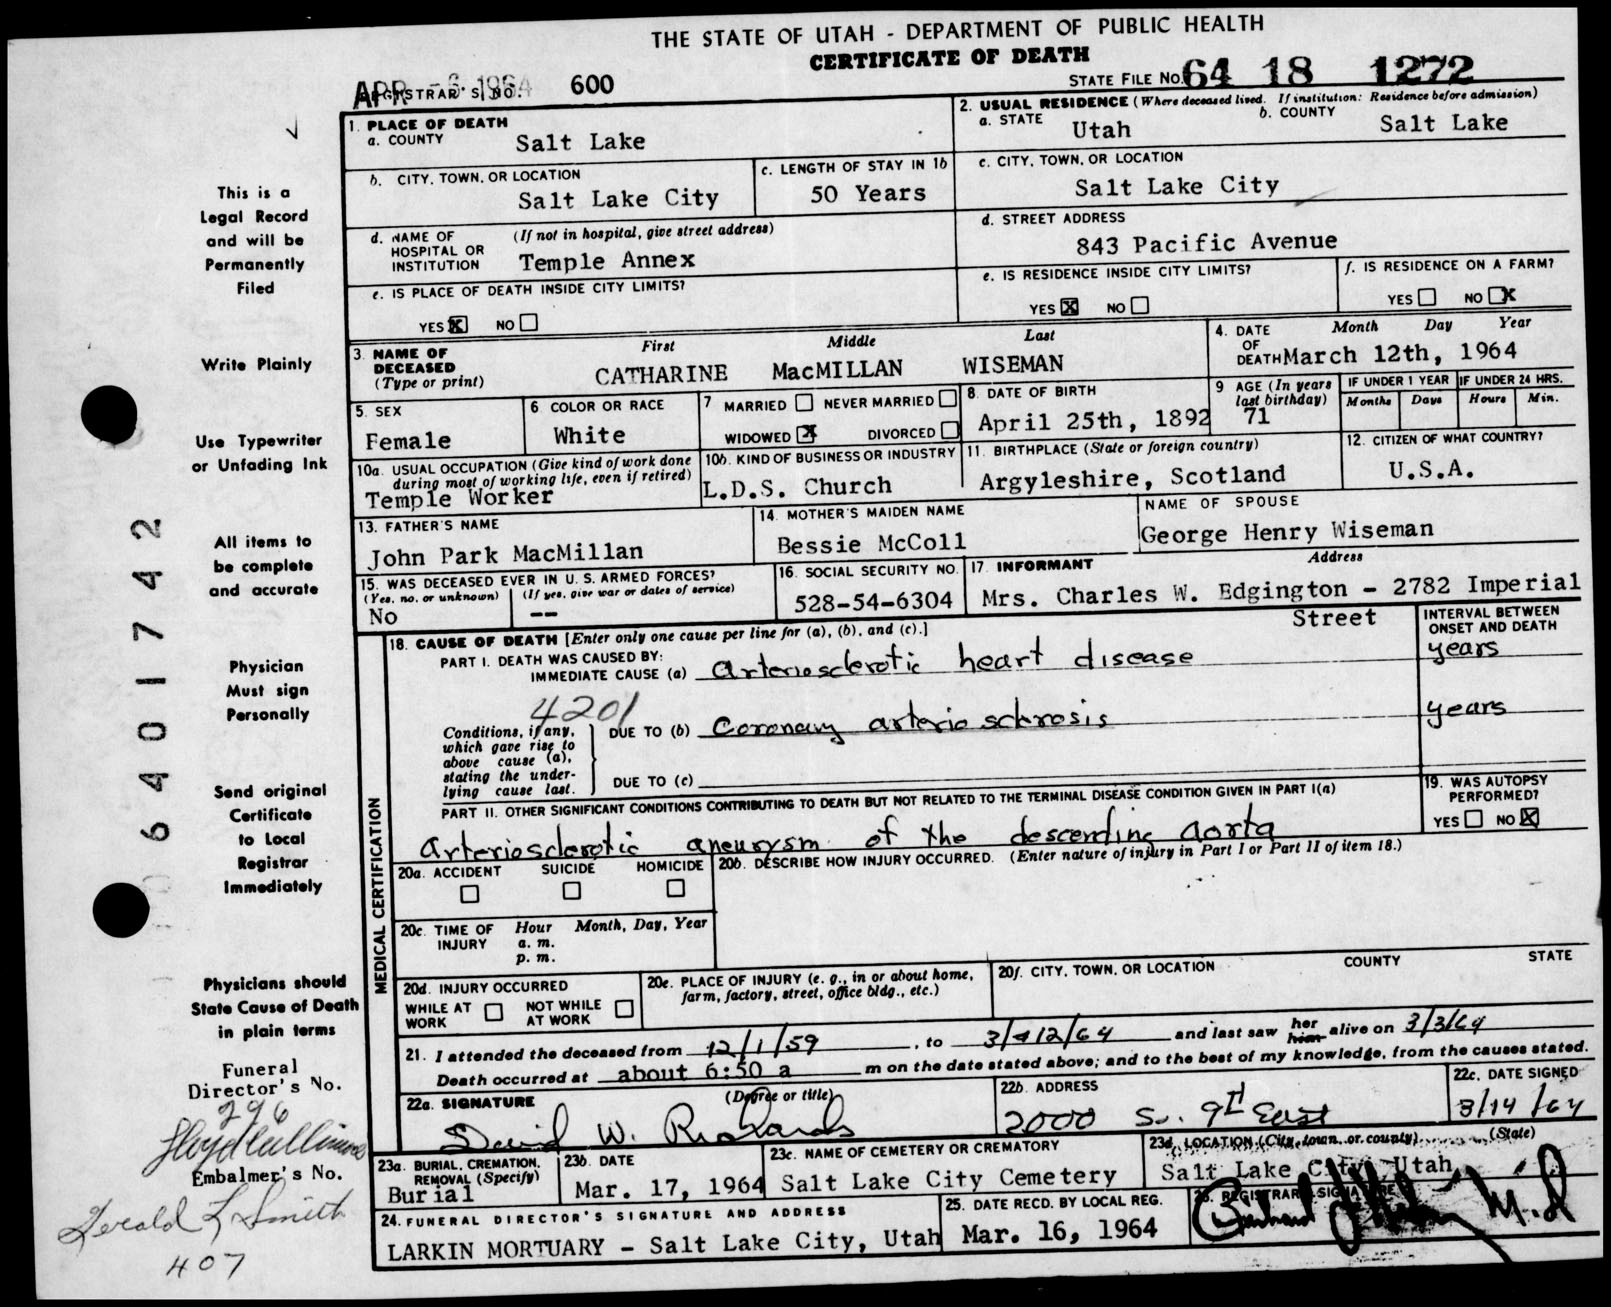 THE STATE OF UTAH - DEPARTMENT OF PUBLIC HEALTH
CERTIFICATE OF DEATH
APR -6 1964
REGISTRAR'S NO. 600
STATE FILE NO. 64 18 1272
1. PLACE OF DEATH
a. COUNTY Salt Lake
2. USUAL RESIDENCE (Where deceased lived. If institution: Residence before admission)
a. STATE Utah
b. COUNTY Salt Lake
b. CITY, TOWN, OR LOCATION
Salt Lake City
c. LENGTH OF STAY IN 1b
50 Years
c. CITY, TOWN, OR LOCATION
Salt Lake City
d. NAME OF HOSPITAL OR INSTITUTION
(If not in hospital, give street address)
Temple Annex
d. STREET ADDRESS
843 Pacific Avenue
e. IS PLACE OF DEATH INSIDE CITY LIMITS?
YES X NO
e. IS RESIDENCE INSIDE CITY LIMITS?
YES X NO
f. IS RESIDENCE ON A FARM?
YES NO X
3. NAME OF DECEASED
(Type or print)
First Middle Last
CATHARINE MacMILLAN WISEMAN
4. DATE OF DEATH
Month Day Year
March 12th, 1964
5. SEX
Female
6. COLOR OR RACE
White
7 MARRIED NEVER MARRIED
WIDOWED X DIVORCED
8. DATE OF BIRTH
April 25th, 1892
9 AGE (In years last birthday)
71
IF UNDER 1 YEAR
Months Days
IF UNDER 24 HRS.
Hours Min.
10a. USUAL OCCUPATION (Give kind of work done during most of working life, even if retired)
Temple Worker
10b. KIND OF BUSINESS OR INDUSTRY
L.D.S. Church
11. BIRTHPLACE (State or foreign country)
Argyleshire, Scotland
12. CITIZEN OF WHAT COUNTRY?
U.S.A.
13. FATHER'S NAME
John Park MacMillan
14. MOTHER'S MAIDEN NAME
Bessie McColl
NAME OF SPOUSE
George Henry Wiseman
15. WAS DECEASED EVER IN U. S. ARMED FORCES?
(Yes, no, or unknown) (If yes, give war or dates of service)
No --
16. SOCIAL SECURITY NO.
528-54-6304
17. INFORMANT Address
Mrs. Charles W. Edgington - 2782 Imperial
Street
MEDICAL CERTIFICATION
18. CAUSE OF DEATH [Enter only one cause per line for (a), (b), and (c).]
INTERVAL BETWEEN ONSET AND DEATH
PART I. DEATH WAS CAUSED BY:
IMMEDIATE CAUSE (a) arteriosclerotic heart disease
years
4201
Conditions, if any, which gave rise to above cause (a), stating the underlying cause last.
DUE TO (b) coronary arteriosclerosis
years
DUE TO (c)
PART II. OTHER SIGNIFICANT CONDITIONS CONTRIBUTING TO DEATH BUT NOT RELATED TO THE TERMINAL DISEASE CONDITION GIVEN IN PART I(a)
arteriosclerotic aneurysm of the descending aorta
19. WAS AUTOPSY PERFORMED?
YES NO X
20a. ACCIDENT SUICIDE HOMICIDE
20b. DESCRIBE HOW INJURY OCCURRED. (Enter nature of injury in Part I or Part II of item 18.)
20c. TIME OF INJURY
Hour Month, Day, Year
a. m.
p. m.
20d. INJURY OCCURRED
WHILE AT WORK NOT WHILE AT WORK
20e. PLACE OF INJURY (e. g., in or about home, farm, factory, street, office bldg., etc.)
20f. CITY, TOWN, OR LOCATION COUNTY STATE
21. I attended the deceased from 12/1/59, to 3/12/64 and last saw her him alive on 3/3/64
Death occurred at about 6:50 a m on the date stated above; and to the best of my knowledge, from the causes stated.
22a. SIGNATURE (Degree or title)
David W. Richards
22b. ADDRESS
2000 So. 9th East
22c. DATE SIGNED
3/14/64
23a. BURIAL, CREMATION, REMOVAL (Specify)
Burial
23b. DATE
Mar. 17, 1964
23c. NAME OF CEMETERY OR CREMATORY
Salt Lake City Cemetery
23d. LOCATION (City, town, or county) (State)
Salt Lake City, Utah
24. FUNERAL DIRECTOR'S SIGNATURE AND ADDRESS
LARKIN MORTUARY - Salt Lake City, Utah
25. DATE RECD. BY LOCAL REG.
Mar. 16, 1964
26. REGISTRAR'S SIGNATURE
M.D
This is a
Legal Record
and will be
Permanently
Filed
Write Plainly
Use Typewriter
or Unfading Ink
All items to
be complete
and accurate
Physician
Must sign
Personally
Send original
Certificate
to Local
Registrar
Immediately
Physicians should
State Cause of Death
in plain terms
Funeral
Director's No.
296
Embalmer's No.
Gerald L Smith
407
6401742